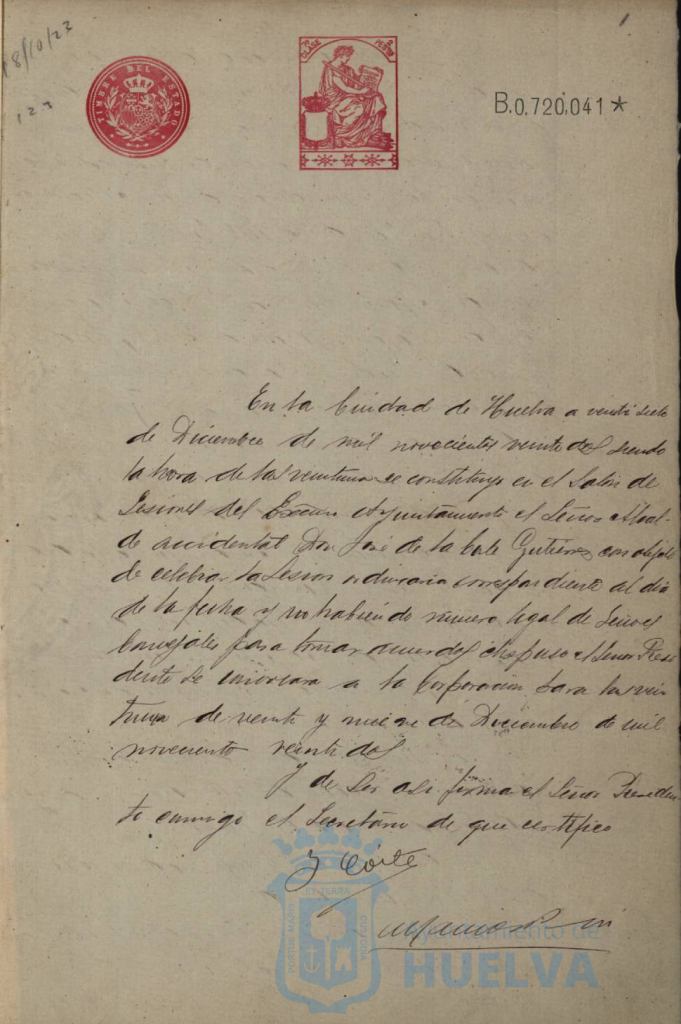 18/10/23
1
TIMBRE DEL ESTADO
7ª CLASE
B.0.720.041*
123
En la Ciudad de Huelva a veinti siete
de Diciembre de mil novecientos veinte dos siendo
la hora de las veintiuna se constituyo en el Salon de
Sesiones del Excmo Ayuntamiento el Señor Alcal-
de accidental Don José de la Corte Gutierrez con objeto
de celebrar la Sesion ordinaria correspondiente al dia
de la fecha y no habiendo número legal de Señores
Concejales para tomar acuerdos dispuso el Señor Presi
dente se convocara a la Corporacion para las vein
tiuna de veinte y nueve de Diciembre de mil
novecientos veinte dos
Y de ser asi firma el Señor Presiden
te conmigo el Secretario de que certifico
J Corte
PORTUS MARIS ET TERRAE CUSTODIA
Ayuntamiento de
HUELVA